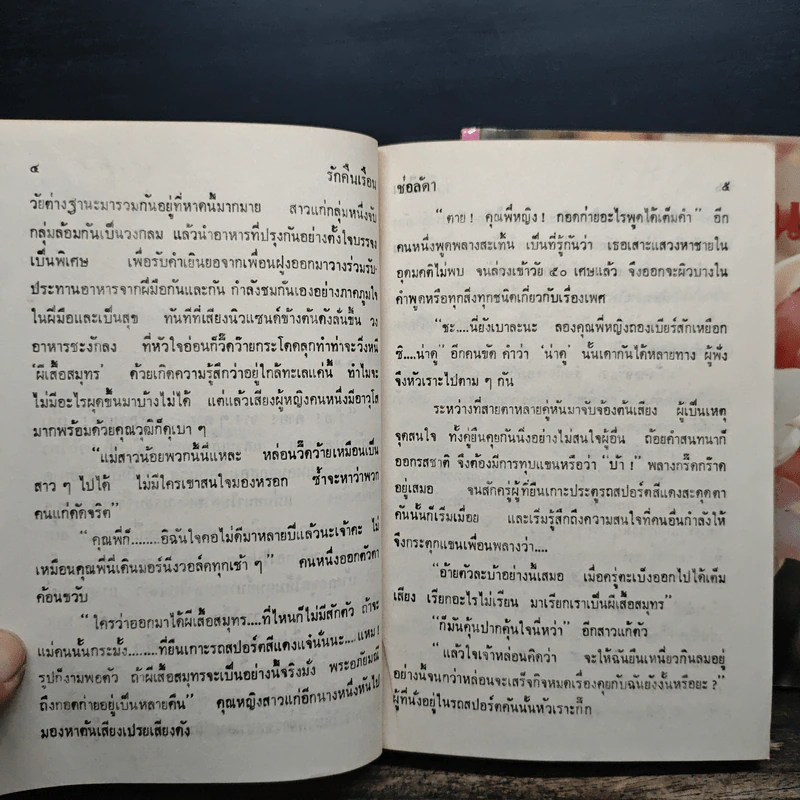 ๔ รักคืนเรือน
วัยต่างฐานะมารวมกันอยู่ที่หาดนี้มากมาย สาวแก่กลุ่มหนึ่งจับ
กลุ่มล้อมกันเป็นวงกลม แล้วนำอาหารที่ปรุงกันอย่างตั้งใจบรรจง
เป็นพิเศษ เพื่อรับคำเยินยอจากเพื่อนฝูงออกมาวางร่วมรับ-
ประทานอาหารจากฝีมือกันและกัน กำลังชมกันเองอย่างภาคภูมิใจ
ในฝีมือและเป็นสุข ทันทีที่เสียงนิวแซนด์ข้างต้นดังลั่นขึ้น วง
อาหารชะงักลง ที่หัวใจอ่อนก็วี้ดว้ายกระโดดลุกทำท่าจะวิ่งหนี
'ผีเสื้อสมุทร' ด้วยเกิดความรู้สึกว่าอยู่ใกล้ทะเลแค่นี้ ทำไมจะ
ไม่มีอะไรผุดขึ้นมาบ้างไม่ได้ แต่แล้วเสียงผู้หญิงคนหนึ่งมีอาวุโส
มากพร้อมด้วยคุณวุฒิก็ดุเบา ๆ
"แม่สาวน้อยพวกนี้นี่แหละ หล่อนวี้ดว้ายเหมือนเป็น
สาว ๆ ไปได้ ไม่มีใครเขาสนใจมองหรอก ซ้ำจะหาว่าพวก
คนแก่ดัดจริต"
"คุณพี่ก็........อิฉันใจคอไม่ดีมาหลายปีแล้วนะเจ้าคะ ไม่
เหมือนคุณพี่นี่เดินมอร์นิ่งวอล์คทุกเช้า ๆ" คนหนึ่งออกตัวตา
ค้อนขวับ
"ใครว่าออกมาได้ผีเสื้อสมุทร....ที่ไหนก็ไม่มีสักตัว ถ้าจะ
แม่คนนั้นกระมั้ง....ที่ยืนเกาะรถสปอร์ตสีแดงแจ๋นั่นนะ....แหม!
รูปก็งามพอตัว ถ้าผีเสื้อสมุทรจะเป็นอย่างนี้จริงมั่ง พระอภัยมณี
ถึงกอดก่ายอยู่เป็นหลายคืน" คุณหญิงสาวแก่อีกนางหนึ่งหันไป
มองหาต้นเสียงเปรยเสียงดัง
ช่อลัดา ๕
"ตาย! คุณพี่หญิง! กอดก่ายอะไรพูดได้เต็มคำ" อีก
คนหนึ่งพูดพลางสะเทิ้น เป็นที่รู้กันว่า เธอเสาะแสวงหาชายใน
อุดมคติไม่พบ จนล่วงเข้าวัย ๕๐ เศษแล้ว จึงออกจะผิวบางใน
คำพูดหรือทุกสิ่งทุกชนิดเกี่ยวกับเรื่องเพศ
"ชะ....นี่ยังเบาละนะ ลองคุณพี่หญิงถองเบียร์สักเหยือก
ซิ....น่าดู" อีกคนขัด คำว่า 'น่าดู' นั้นเดากันได้หลายทาง ผู้ฟัง
จึงหัวเราะไปตาม ๆ กัน
ระหว่างที่สายตาหลายคู่หันมาจับจ้องต้นเสียง ผู้เป็นเหตุ
จุดสนใจ ทั้งคู่ยืนคุยกันนิ่งอย่างไม่สนใจผู้อื่น ถ้อยคำสนทนาก็
ออกรสชาติ จึงต้องมีการทุบแขนหรือว่า 'บ้า!' พลางกรี๊ดกร๊าด
อยู่เสมอ จนสักครู่ผู้ที่ยืนเกาะประตูรถสปอร์ตสีแดงสะดุดตา
คันนั้นก็เริ่มเมื่อย และเริ่มรู้สึกถึงความสนใจที่คนอื่นกำลังให้
จึงกระตุกแขนเพื่อนพลางว่า....
"อ้ายตัวละบ้าอย่างนี้เสมอ เมื่อครู่ตะเบ็งออกไปได้เต็ม
เสียง เรียกอะไรไม่เรียน มาเรียกเราเป็นผีเสื้อสมุทร"
"ก็มันคุ้นปากคุ้นใจนี่หว่า" อีกสาวแก้ตัว
"แล้วใจเจ้าหล่อนคิดว่า จะให้ฉันยืนเหนี่ยวกินลมอยู่
อย่างนี้จนกว่าหล่อนจะเสร็จกิจหมดเรื่องคุยกับฉันยังงั้นหรือยะ?"
ผู้ที่นั่งอยู่ในรถสปอร์ตคันนั้นหัวเราะกิ๊ก